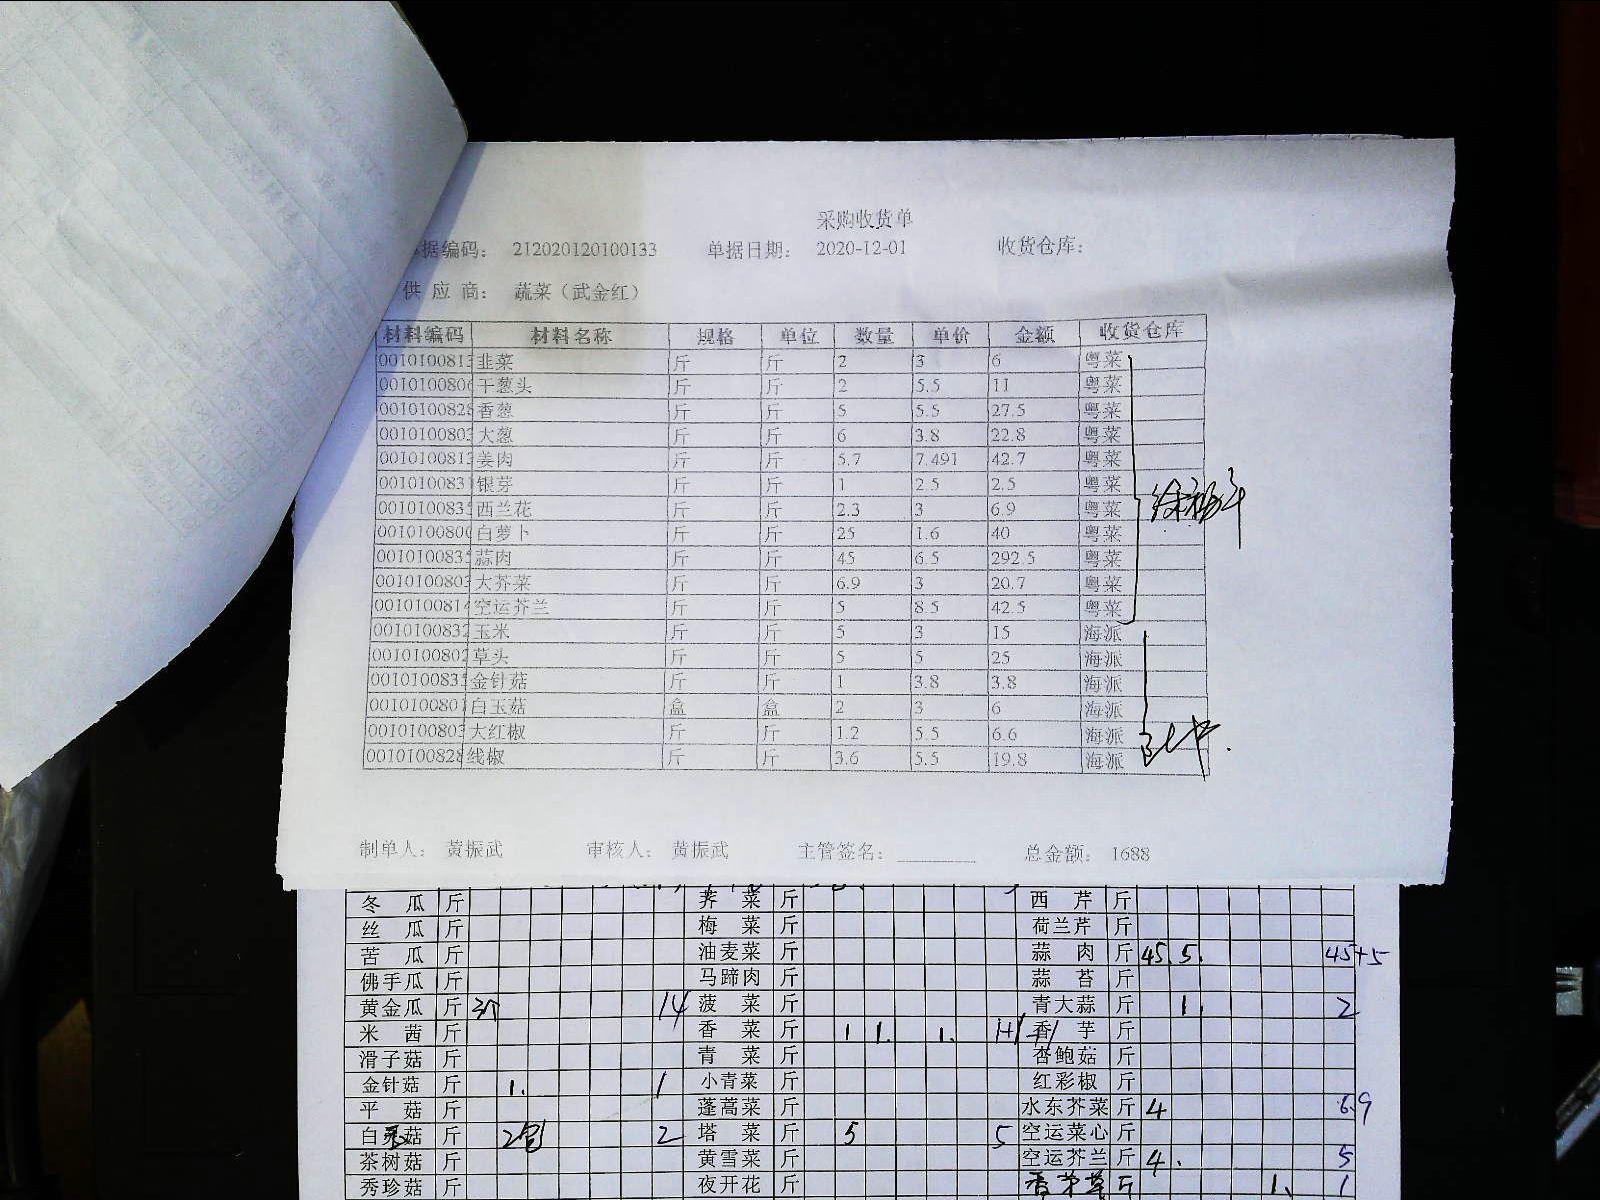 采购收货单
据编码： 212020120100133 单据日期： 2020-12-01 收货仓库：
供 应 商： 蔬菜（武金红）
材料编码 材料名称 规格 单位 数量 单价 金额 收货仓库
001010081 韭菜 斤 斤 2 3 6 粤菜
001010080 干葱头 斤 斤 2 5.5 11 粤菜
001010082 香葱 斤 斤 5 5.5 27.5 粤菜
001010080 大葱 斤 斤 6 3.8 22.8 粤菜
001010081 姜肉 斤 斤 5.7 7.491 42.7 粤菜
001010083 银芽 斤 斤 1 2.5 2.5 粤菜
001010083 西兰花 斤 斤 2.3 3 6.9 粤菜
001010080 白萝卜 斤 斤 25 1.6 40 粤菜
001010083 蒜肉 斤 斤 45 6.5 292.5 粤菜
001010080 大芥菜 斤 斤 6.9 3 20.7 粤菜
001010081 空运芥兰 斤 斤 5 8.5 42.5 粤菜
001010083 玉米 斤 斤 5 3 15 海派
001010080 草头 斤 斤 5 5 25 海派
001010083 金针菇 斤 斤 1 3.8 3.8 海派
001010080 白玉菇 盒 盒 2 3 6 海派
001010080 大红椒 斤 斤 1.2 5.5 6.6 海派
001010082 线椒 斤 斤 3.6 5.5 19.8 海派
制单人： 黄振武 审核人： 黄振武 主管签名： 总金额： 1688
冬瓜 斤 荠菜 斤 西芹 斤
丝瓜 斤 梅菜 斤 荷兰芹 斤
苦瓜 斤 油麦菜 斤 蒜肉 斤 45. 5. 45+5
佛手瓜 斤 马蹄肉 斤 蒜苔 斤
黄金瓜 斤 3个 14 菠菜 斤 青大蒜 斤 1. 2
米茜 斤 香菜 斤 1 1. 1. 香芋 斤
滑子菇 斤 青菜 斤 杏鲍菇 斤
金针菇 斤 1. 1 小青菜 斤 红彩椒 斤
平菇 斤 蓬蒿菜 斤 水东芥菜 斤 4 6.9
白玉菇 斤 2包 2 塔菜 斤 5 5 空运菜心 斤
茶树菇 斤 黄雪菜 斤 空运芥兰 斤 4. 5
秀珍菇 斤 夜开花 斤 香茅草 斤 1. 1